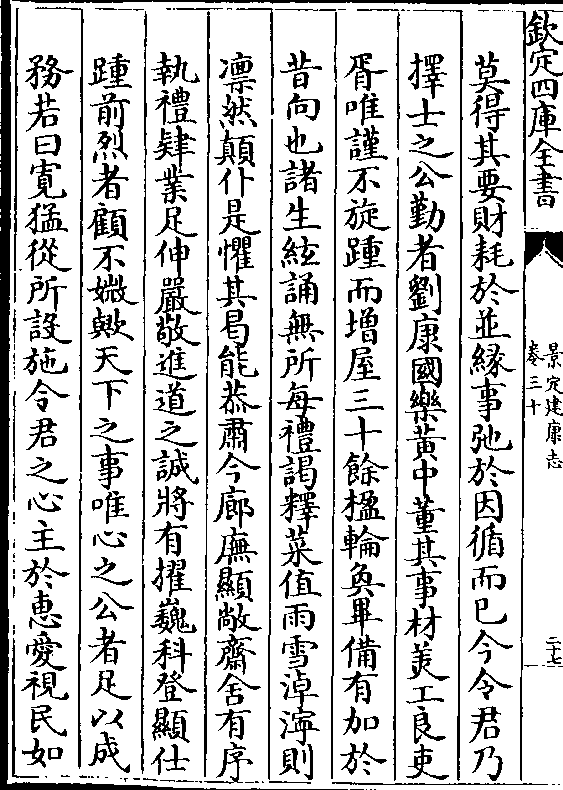 欽定四庫全書
景定建康志
卷三十
二十七
莫得其要財耗於並緣事弛於因循而已今令君乃
擇士之公勤者劉康國樂黄中董其事材美工良吏
胥唯謹不旋踵而增屋三十餘楹輪奐畢備有加於
昔向也諸生絃誦無所每禮謁釋菜值雨雪淖濘則
凛然顛仆是懼其曷能恭肅今廊廡顯敞齋舍有序
執禮肄業足伸嚴敬進道之誠將有擢巍科登顯仕
踵前烈者顧不媺歟天下之事唯心之公者足以成
務若曰寛猛從所設施令君之心主於恵愛視民如